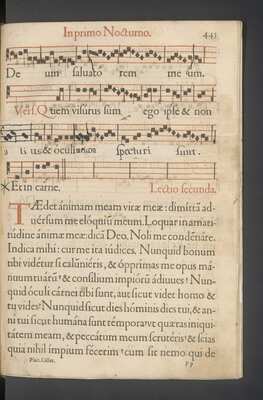 In primo Nocturno. 443
De um saluato rem me um.
Vers. Quem visurus sum ego ipse & non
ali us & oculi mei conspecturi sunt.
Et in carne. Lectio secunda.
TÆdet ánimam meam vitæ meæ: dimittā ad-
uérsum me elóquiū meum. Loquar in amari-
túdine ánimæ meæ: dicā Deo, Noli me condēnáre.
Indica mihi: cur me ita iúdices. Nunquid bonum
tibi vidétur si calūniéris, & ópprimas me opus má-
nuum tuárū, & consilium impiórū ádiuues? Nun-
quid óculi cárnei tibi sunt, aut sicut videt homo &
tu vides? Nunquid sicut dies hóminis dies tui, & an-
ni tui sicut humána sunt témpora: vt quæras iniqui-
tátem meam, & peccátum meum scrutéris? & scias
quia nihil impium fécerim, cum sit nemo qui de
P p